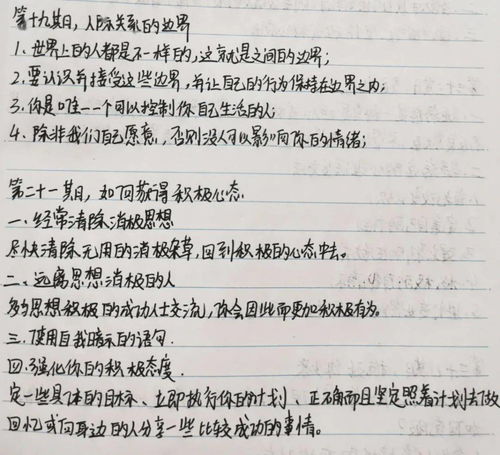 第十九其日，人际关系的边界
1. 世界上的人都是不一样的，这就是之间的边界；
2. 要认识并接受这些边界，并让自己的行为保持在边界之内；
3. 你是唯一一个可以控制你自己生活的人；
4. 除非我们自己愿意，否则没人可以影响你的情绪；
第二十一其日，如何获得积极心态
一、经常清除消极思想
尽快清除无用的消极杂草，回到积极的心态中去。
二、远离思想消极的人
多与思想积极的成功人士交流，你会因此而更加积极有为。
三、使用自我暗示的语句.
四、强化你的积极态度.
定一些具体的目标、立即执行你的计划、正确而且坚定照着计划去做
回忆或向身边的人分享一些比较成功的事情。